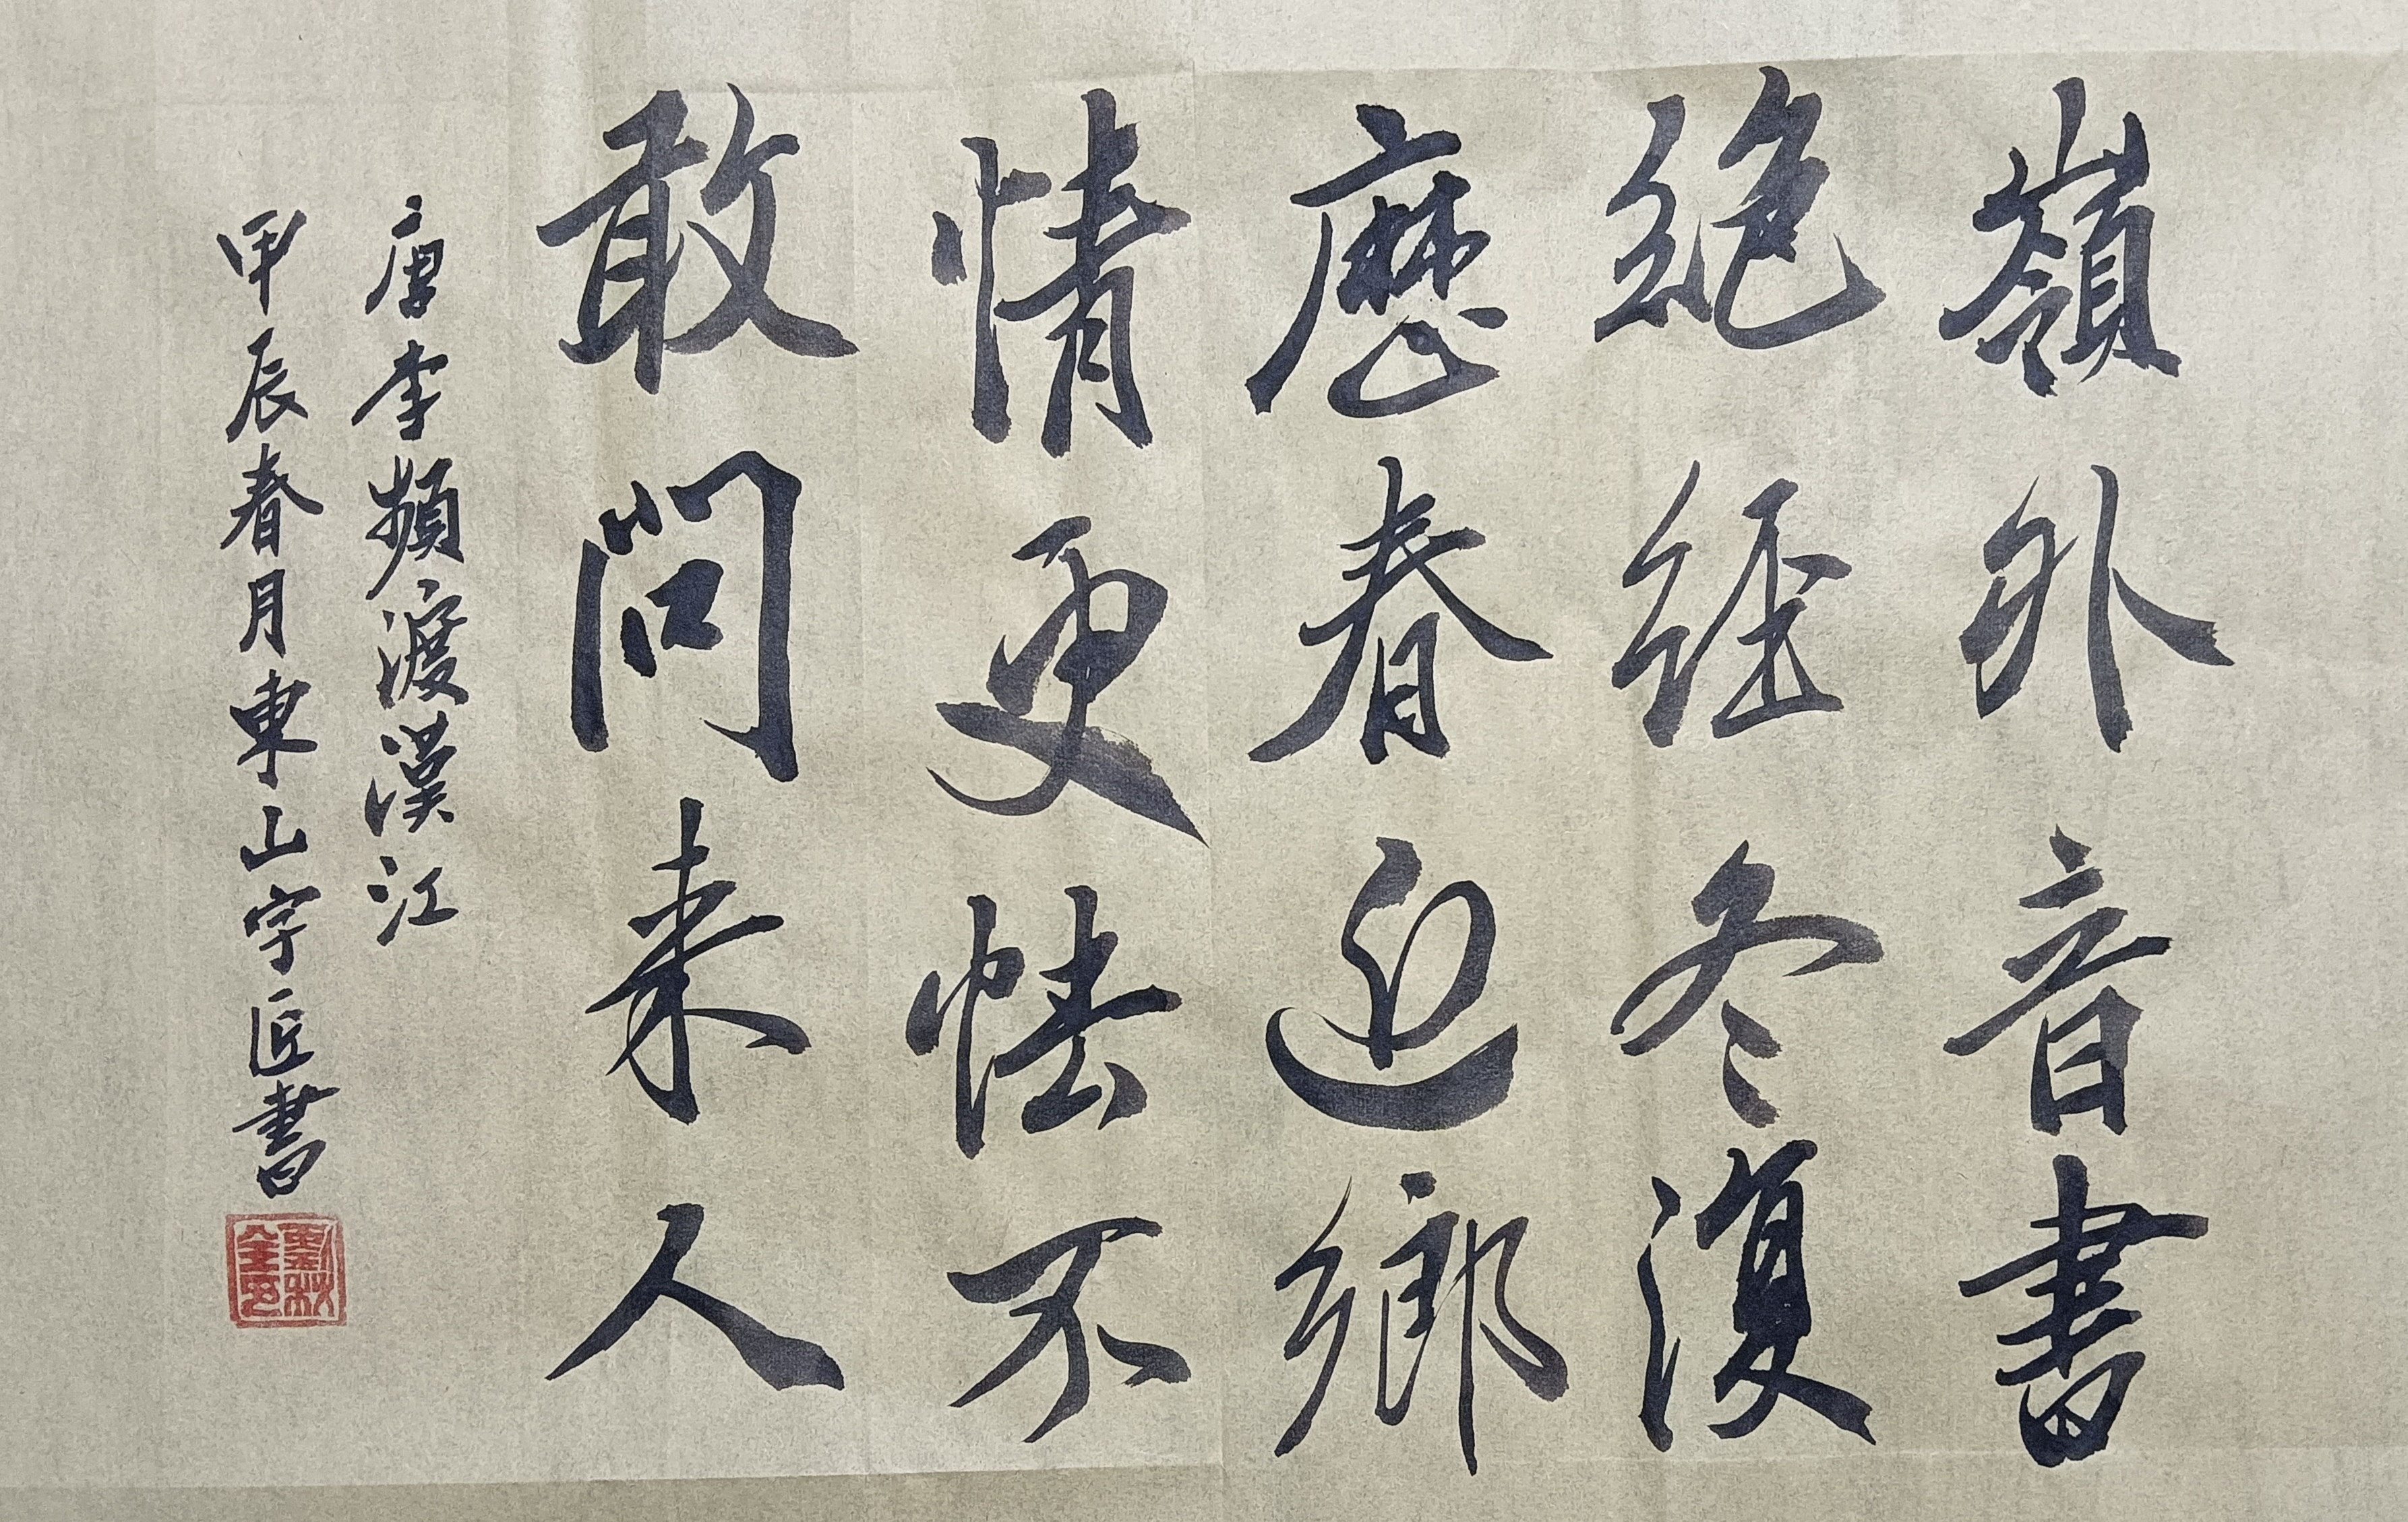 嶺外音書
絶經冬復
歷春近鄉
情更怯不
敢問来人
唐李頻渡漢江
甲辰春月東山字匠書